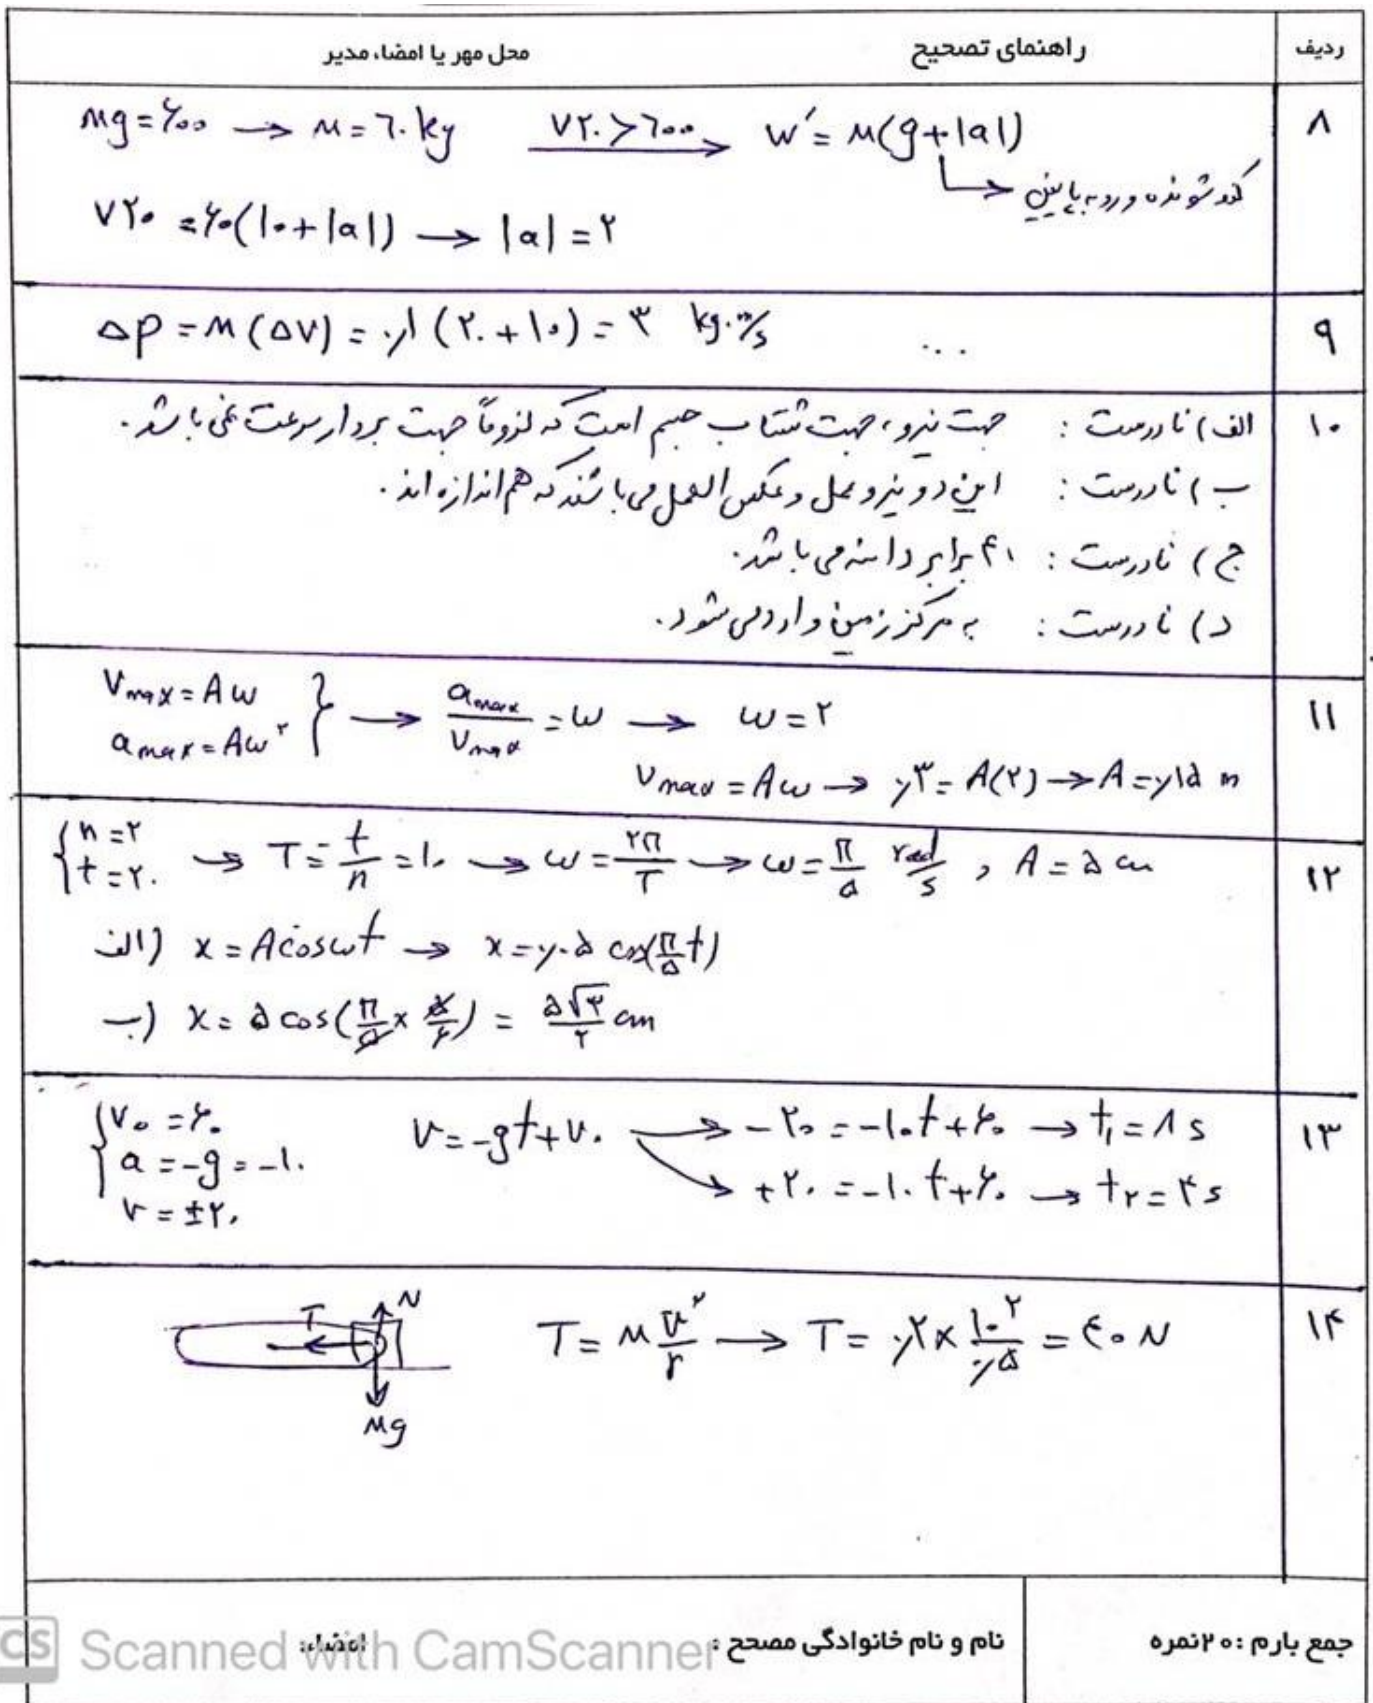 ردیف راهنمای تصحیح محل مهر یا امضاء مدیر
۸
mg = ۶۰۰ → m = ۶۰ kg ۷۲۰ > ۶۰۰ → w′ = m(g+|a|)
کند شونده و رو به پایین
۷۲۰ = ۶۰(۱۰+|a|) → |a| = ۲
۹
Δp = m(Δv) = ۰٫۱ (۲۰ + ۱۰) = ۳ kg.m/s ...
۱۰
الف) نادرست : جهت نیرو، جهت شتاب جسم است که لزوماً جهت بردار سرعت نمی باشد.
ب) نادرست : این دو نیرو عمل و عکس العمل می باشند که هم اندازه اند.
ج) نادرست : ۴ برابر دامنه می باشد.
د) نادرست : به مرکز زمین وارد می شود.
۱۱
Vmax = Aω
amax = Aω² } → amax/Vmax = ω → ω = ۲
Vmax = Aω → ۰٫۳ = A(۲) → A = ۰٫۱۵ m
۱۲
{n = ۲
t = ۲۰ → T = t/n = ۱۰ → ω = ۲π/T → ω = π/۵ rad/s , A = ۵ cm
الف) x = A cos ωt → x = ۰٫۰۵ cos(π/۵ t)
ب) x = ۵ cos(π/۵ × ۵/۶) = ۵√۳/۲ cm
۱۳
{V₀ = ۶۰
a = -g = -۱۰
v = ±۲۰
v = -gt + v₀ → -۲۰ = -۱۰t + ۶۰ → t₁ = ۸ s
→ +۲۰ = -۱۰t + ۶۰ → t₂ = ۴ s
۱۴
T N
T = m v²/r → T = ۰٫۲ × ۱۰²/۰٫۵ = ۴۰ N
mg
جمع بارم : ۲۰ نمره نام و نام خانوادگی مصحح : امضاء:
CS Scanned with CamScanner